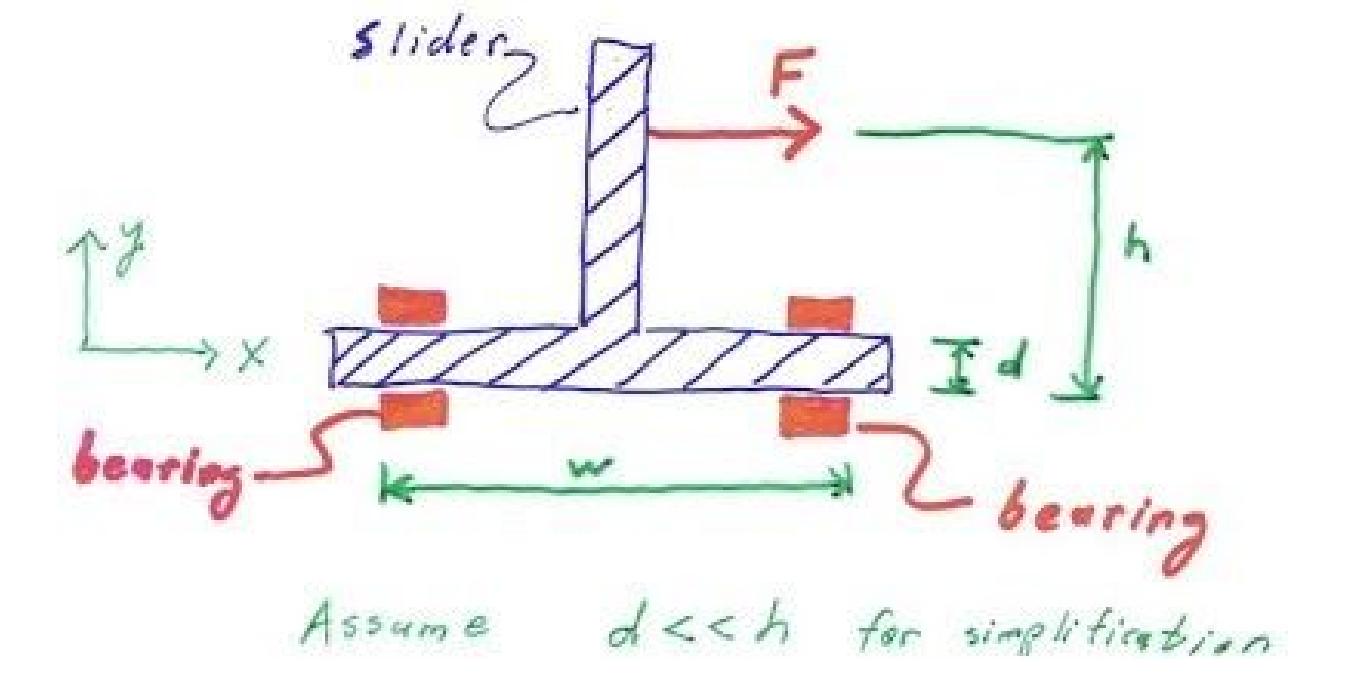 slider
F
y
h
x
d
bearing
w
bearing
Assume d<<h for simplification